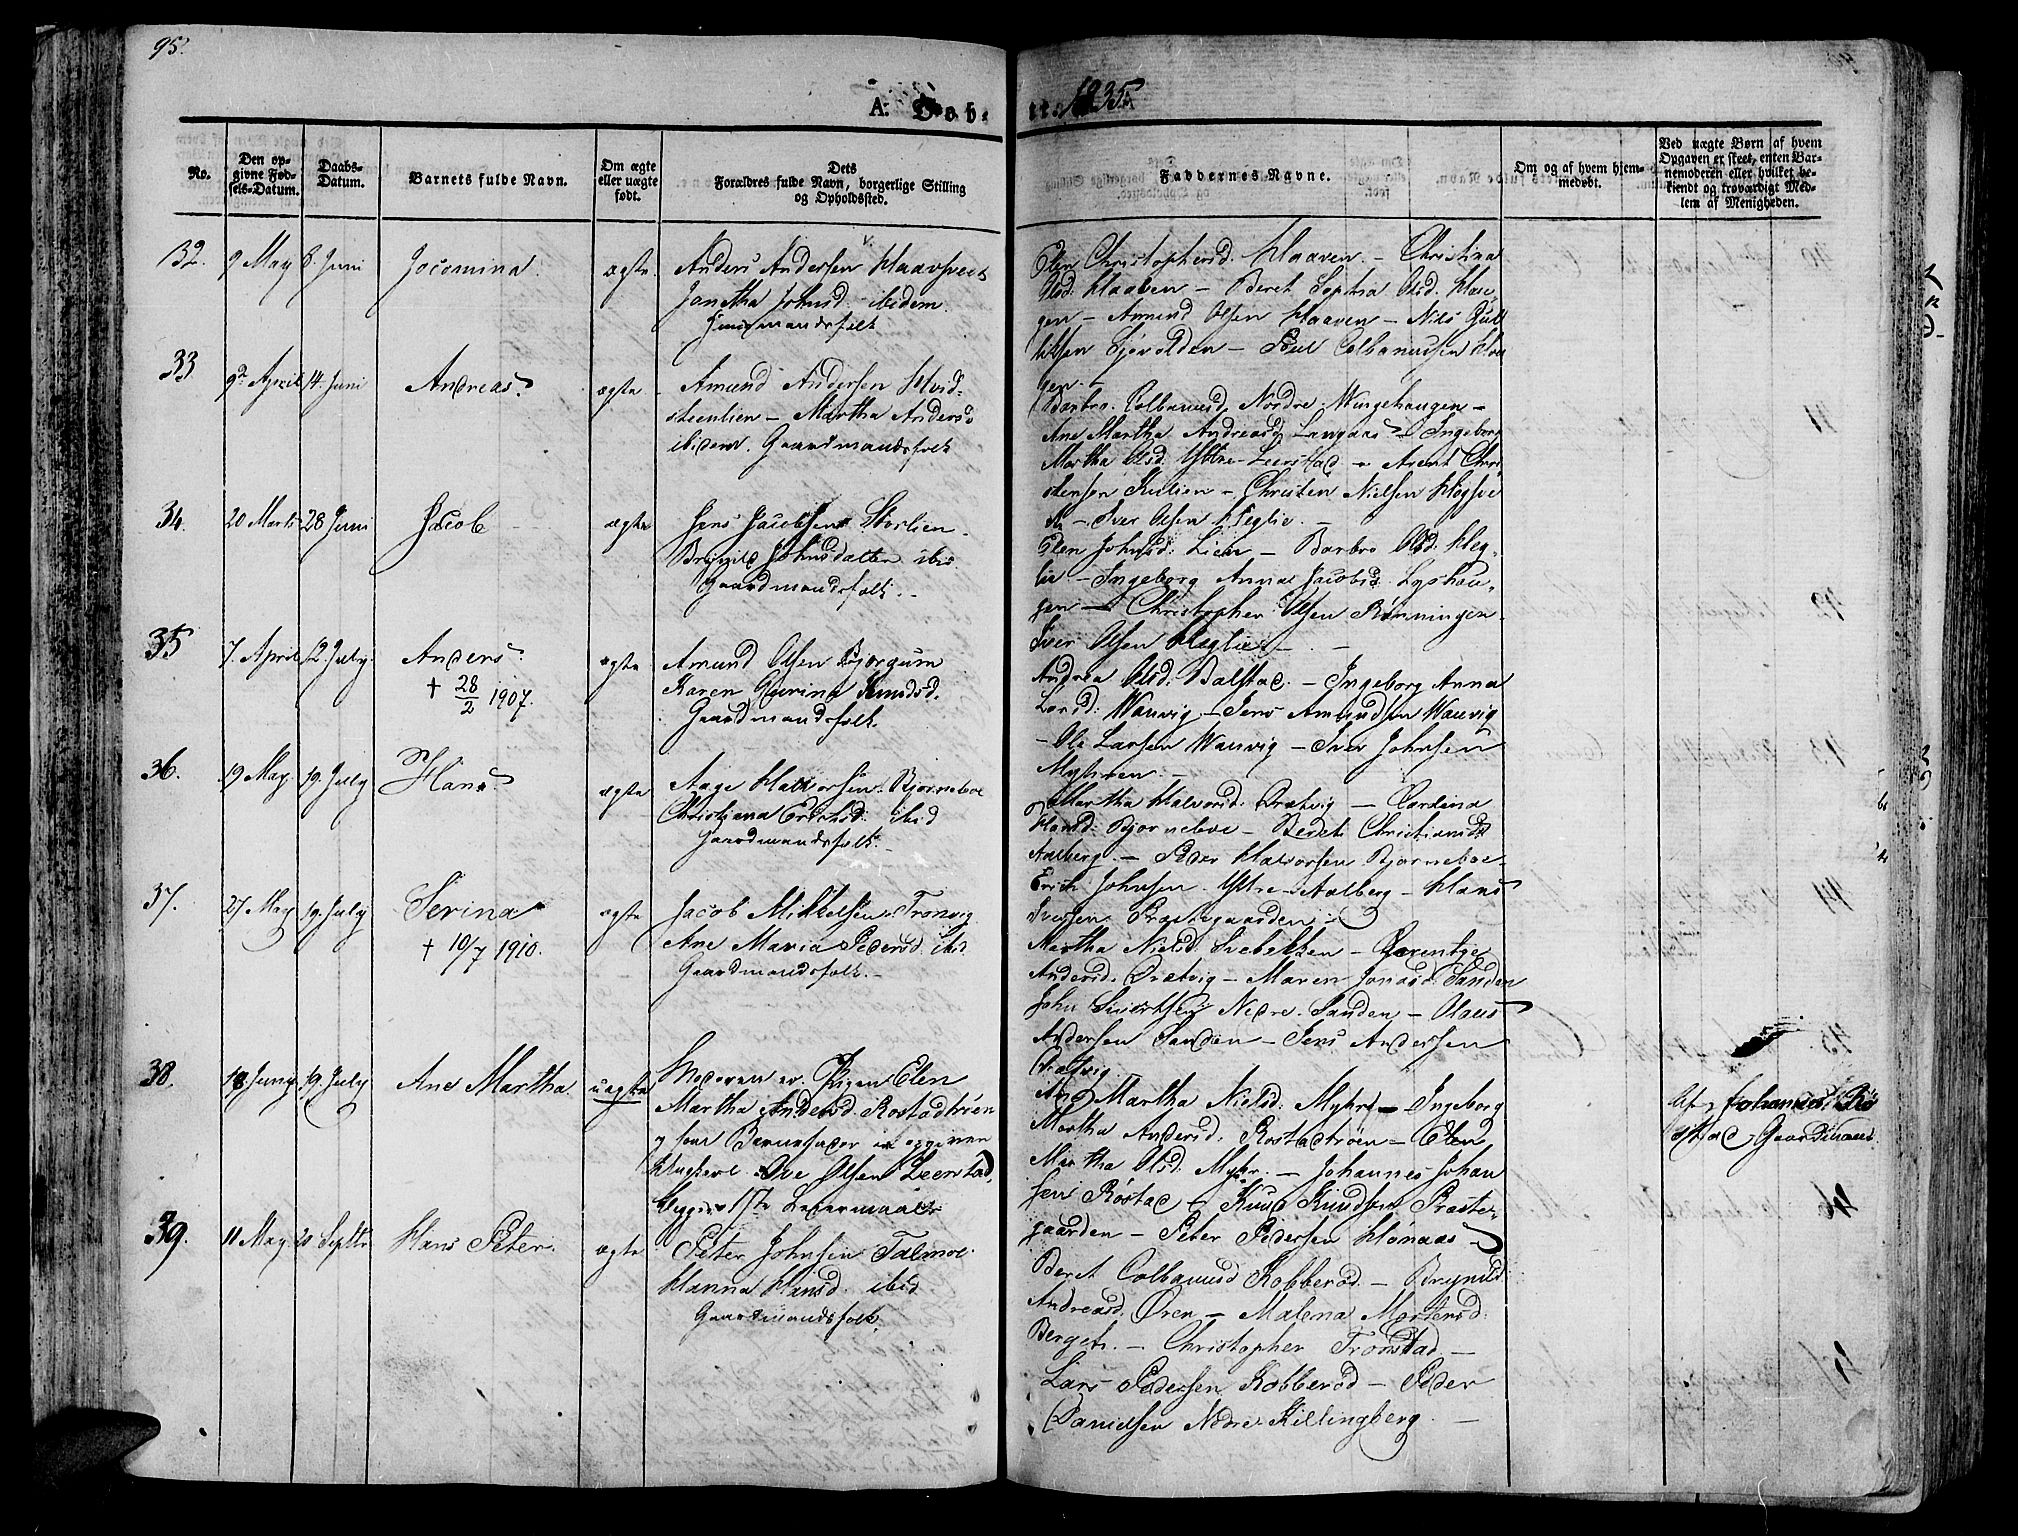 95.
A: Døb-
te. 1835
No.
Den op-
givne Fød-
sels-Datum.
Daabs-
Datum.
Barnets fulde Navn.
Om ægte
eller uægte
født.
Dets
Forældres fulde Navn, borgerlige Stilling
og Opholdssted.
Faddernes Navne.
Om og af hvem hjem-
medøbt.
Ved uægte Børn af hvem
Opgaven er skeet, enten Bar-
nemoderen eller hvilket be-
kiendt og troværdigt Med-
lem af Menigheden.
32. 9 May 8 Juni Jocomina. ægte
Anders Andersen
Janetha Johnsd. ibidem.
Huusmandsfolk
Elen Christophersd. Haaven - Christina
Olsd: Haaven - Beret Sophia Olsd. Hau-
gen - Amund Olsen Haaven - Nils Gul
liksen Sjøvolden - Poul Colbanussen Hou
gen. -
33 9de April 14. Juni Andreas. ægte
Amund Andersen Hvid-
steenlien - Martha Andersd
ibidem. Gaardmandsfolk
Barbro Colbanusd. Nordre Wingehaugen -
Ane Martha Andreasd Langaas - Ingeborg
Martha Olsd. Yttre-Leerstad - Arent Chri
stensen Kulien - Christen Nielsen
- Iver Olsen Heglie. -
34. 20 Marts 28 Juni Jacob ægte
Jens Jacobsen Storlien -
Brynild Johnsdatter ibid.
Gaardmandsfolk. -
Elen Johnsd: Lien - Barbro Olsd: Heg-
lie - Ingeborg Anna Jacobsd. Lyshau-
gen - Christopher Olsen Rønningen -
Iver Olsen Heglie - -
35 7. April 12. July. Anders. ægte
† 28/2 1907.
Amund Olsen Bjørgum
Karen Gurina Knudsd.
Gaardmandsfolk.
Andrea Olsd: Balstad. - Ingeborg Anna
Larsd: Wauvig - Jens Amundsen Wauvig
- Ole Larsen Wauvig - Iver Johnsen
Myhren -
36. 19 May. 19. July Hans ægte
Aage Halvorsen Bjørneboe
Christiana Erichsd: ibid
Gaardmandsfolk. -
Martha Halvorsd. Drætvig - Cardina
Hansd: Bjørneboe - Beret Christiansd
Aalberg - Peder Halvorsen Bjørneboe -
Erich Johnsen Yttre-Aalberg - Hans
Iversen Præstegaarden -
37. 27 May 19. July Serina ægte
† 10/7 1910.
Jacob Mikkelsen Tronvig
Ane Maria Pedersd. ibid
Gaardmandsfolk. -
Martha Nielsd. Svebakken - Dorenthe
Andersd. Drætvig - Maren Jonasd. Sanden
John Sivertsen Nedre-Sanden - Claus
Andersen Sanden - Jens Andersen
Drætvig.
38. 18. Juny 19. July Ane Martha. uægte
Moderen er Pigen Elen
Martha Andersd. Rostadtrøen
og som Barnefader er opgiven
Ungkarl Ove Olsen Leerstad,
Begges 1ste Leiermaal
Ane Martha Nielsd: Myhr - Ingeborg
Martha Andersd. Rostadtrøen - Elen
Martha Olsd. Myhr. - Johannes Johan
sen Røstad - Knud Knudsen Præste-
gaarden - Peter Pedersen Hønaas -
Af Johannes Rø
stad Gaardmand
39. 11 May 20 Septbr. Hans Peter. ægte
Peter Johnsen Talmoe.
Hanna Hansd. ibid
Gaardmandsfolk.
Beret Colbanusd Robberød - Brynild
Andreasd. Øren - Malena Mortensd:
Berget. - Christopher Tronstad. -
Lars Pedersen Robberød - Peder
Danielsen Nedre-Killingberg. -